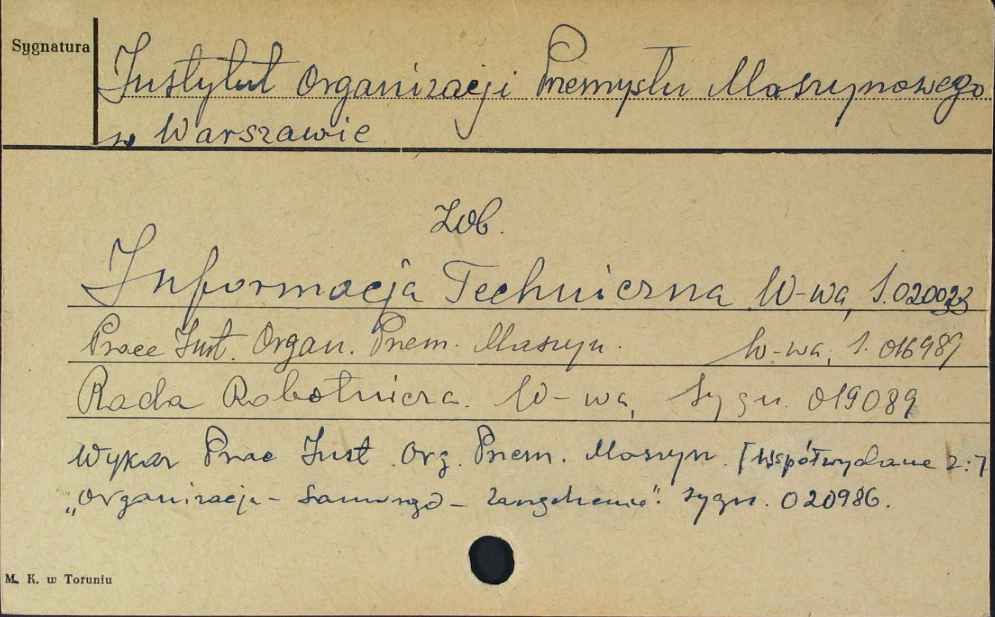 Sygnatura
Instytut Organizacji Przemysłu Maszynowego
w Warszawie
Zob.
Informacja Techniczna W-wa, S.020023
Prace Inst. Organ. Przem. Maszyn. W-wa, S. 016989
Rada Robotnicza. W-wa, Sygn. 019089
Wykaz Prac Inst. Org. Przem. Maszyn. [Współwydane z:]
„Organizacja - Samorząd - Zarządzanie". Sygn. 020986.
M. K. w Toruniu